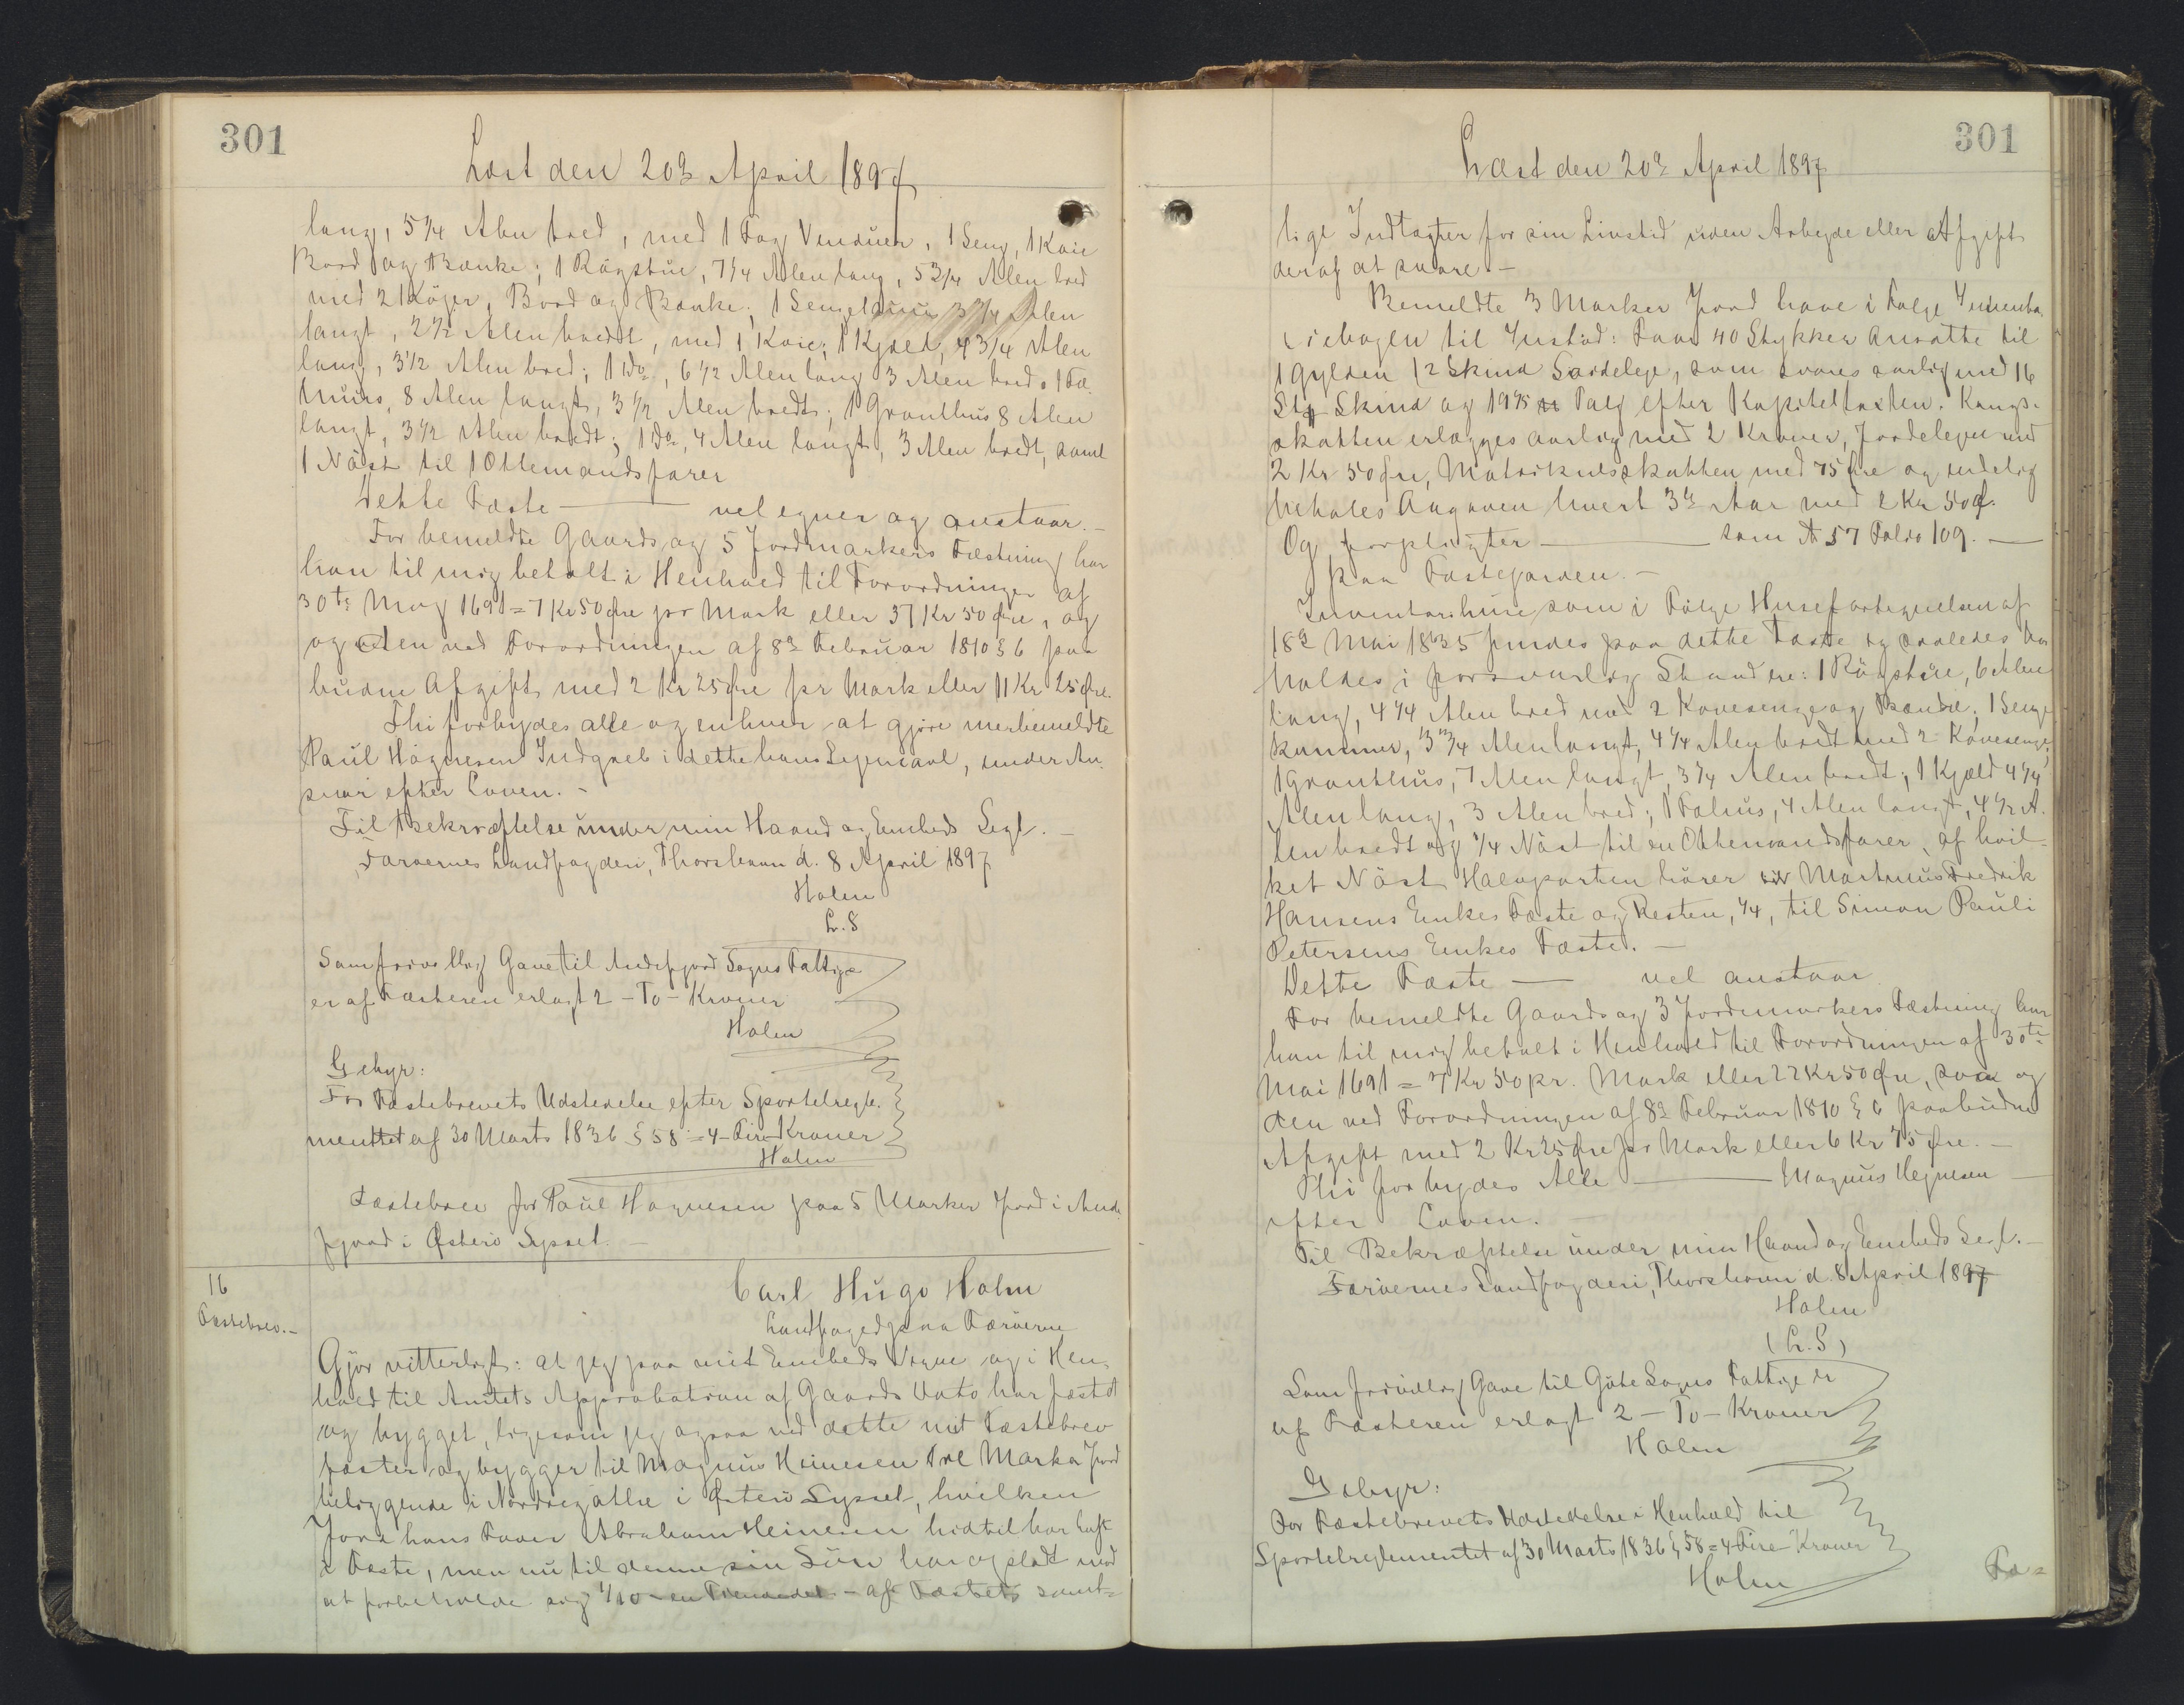 301
Læst den 20de April 1897
lang, 5 1/4 Alen bred, med 1 Fag Vinduer, 1 Seng, 1 Køie
Bord og Bænke; 1 Rögstue, 7 1/4 Alen lang, 5 3/4 Alen bred
med 2 Köjer, Bord og Bænke; 1 3 3/4 Alen
langt, 2 1/2 Alen bredt, med 1 Koie; 1 Kjæld, 4 3/4 Alen
lang, 3 1/2 Alen bred; 1 Do, 6 1/2 Alen lang 3 Alen bred; 1 Fæ
huus, 8 Alen langt, 3 1/2 Alen bredt; 1 Grouthus 8 Alen
langt, 3 1/2 Alen bredt; 1 Do, 4 Alen langt, 3 Alen bredt, samt
1 Nöst til 1 Ottemandsfarer
Dette Fæste — vel egner og anstaar. -
For bemeldte Gaards og 5 Jordmarkers Fæstning har
han til mig betalt i Henhold til Forordningen af
30te May 1691 = 7 Kr 50 Øre pr Mark eller 37 Kr 50 Øre, og
og den ved Forordningen af 8de Februar 1810 § 6 paa
budne Afgift med 2 Kr 25 Øre pr Mark eller 11 Kr 25 Øre.
Thi forbydes alle og enhver at gjöre merbemeldte
Paul Högnesen Indgreb i dette hans Lejemaal, under An
svar efter Loven. -
Til Bekræftelse under min Haand og Embeds Segl. -
Færøernes Landfogderi, Thorshavn d. 8 April 1897
Holm
L.S
Som frivillig Gave til Andefjord Sogns Fattige
er af Fæsteren erlagt 2 - To - Kroner
Holm
Gebyr:
For Fæstebrevets Udstedelse efter Sportelregle-
mentet af 30 Marts 1836 § 58 = 4 - Fire Kroner
Holm
Fæstebrev for Paul Hognesen paa 5 Marker Jord i Ande
fjord i Østerö Syssel. -
16
Fæstebrev. -
Carl Hugo Holm
Landfoged paa Færöerne
Gjör vitterligt: at jeg paa mit Embeds Vegne og i Hen-
hold til Amtets Approbation af Gaards Dato har fæstet
og bygget, ligesom jeg ogsaa ved dette mit Fæstebrev
fæster og bygger til Magnus Heinesen Tre Marker Jord
beliggende i Nordregöthe i Østerö Syssel, hvilken
Jord hans Fader Abraham Heinesen hidtil har haft
i Fæste, men nu til denne sin Sön har opladt mod
at forbeholde sig 1/10 - en Tiendedel - af Fæstets samt-
301
Læst den 20de April 1897
lige Indtægter for sin Livstid uden Arbejde eller Afgift
deraf at svare. -
Bemeldte 3 Marker Jord have i Følge Inventa-
riebogen til Indstöd: Faar 40 Stykker ansatte til
1 Gylden 12 Skind Sædeleje, som svares aarlig med 16
Stk Skind og Talg efter Kapiteltaxten. Kongs-
skatten erlægges aarlig med 2 Kroner, Jordelejen med
2 Kr 50 Øre, Matrikulsskatten med 75 Øre og endelig
betales Augaven hvert 3die Aar med 2 Kr 50 Ø.
Og forpligter — som № 57 Folio 109. —
paa Fæstejorden. -
Inventariehuse som i Følge Husefortegnelsen af
18de Mai 1835 findes paa dette Fæste og saaledes bør
holdes i forsvarlig Stand ere: 1 Rögstue, 6 Alen
lang, 4 1/4 Alen bred med 2 Kovesenge og Bænke, 1 Senge
kammer, 3 3/4 Alen langt, 4 1/4 Alen bredt med 2 Kovesenge,
1 Grouthus, 7 Alen langt, 3 1/4 Alen bredt; 1 Kjæld 4 1/4
Alen lang, 3 Alen bred; 1 Fæhus, 4 Alen langt, 4 1/2 A-
len bredt og 1/4 Nöst til en Ottemandsfarer, af hvil-
ket Nöst Halvparten hörer til Martinus Fredrik
Hansens Enkes Fæste og Resten, 1/4, til Simon Pauli
Petersens Enkes Fæste. -
Dette Fæste — vel anstaar
For bemeldte Gaards og 3 Jordemarkers Fæstning har
han til mig betalt i Henhold til Forordningen af 30te
Mai 1691 = 7 Kr 50 pr. Mark eller 22 Kr 50 Øre, som og
den ved Forordningen af 8de Februar 1810 § 6 paabudne
Afgift med 2 Kr 25 Øre pr Mark eller 6 Kr 75 Øre. -
Thi forbydes Alle — Magnus Hejnesen —
efter Loven. -
Til Bekræftelse under min Haand og Embeds Segl. -
Færöernes Landfogderi, Thorshavn d. 8 April 1897
Holm
(L.S)
Som frivillig Gave til Göte Sogns Fattige er
af Fæsteren erlagt 2 - To - Kroner
Holm
Gebyr:
For Fæstebrevets Udstedelse i Henhold til
Sportelreglementet af 30 Marts 1836 § 58 = 4 Fire Kroner
Holm
Fæ-